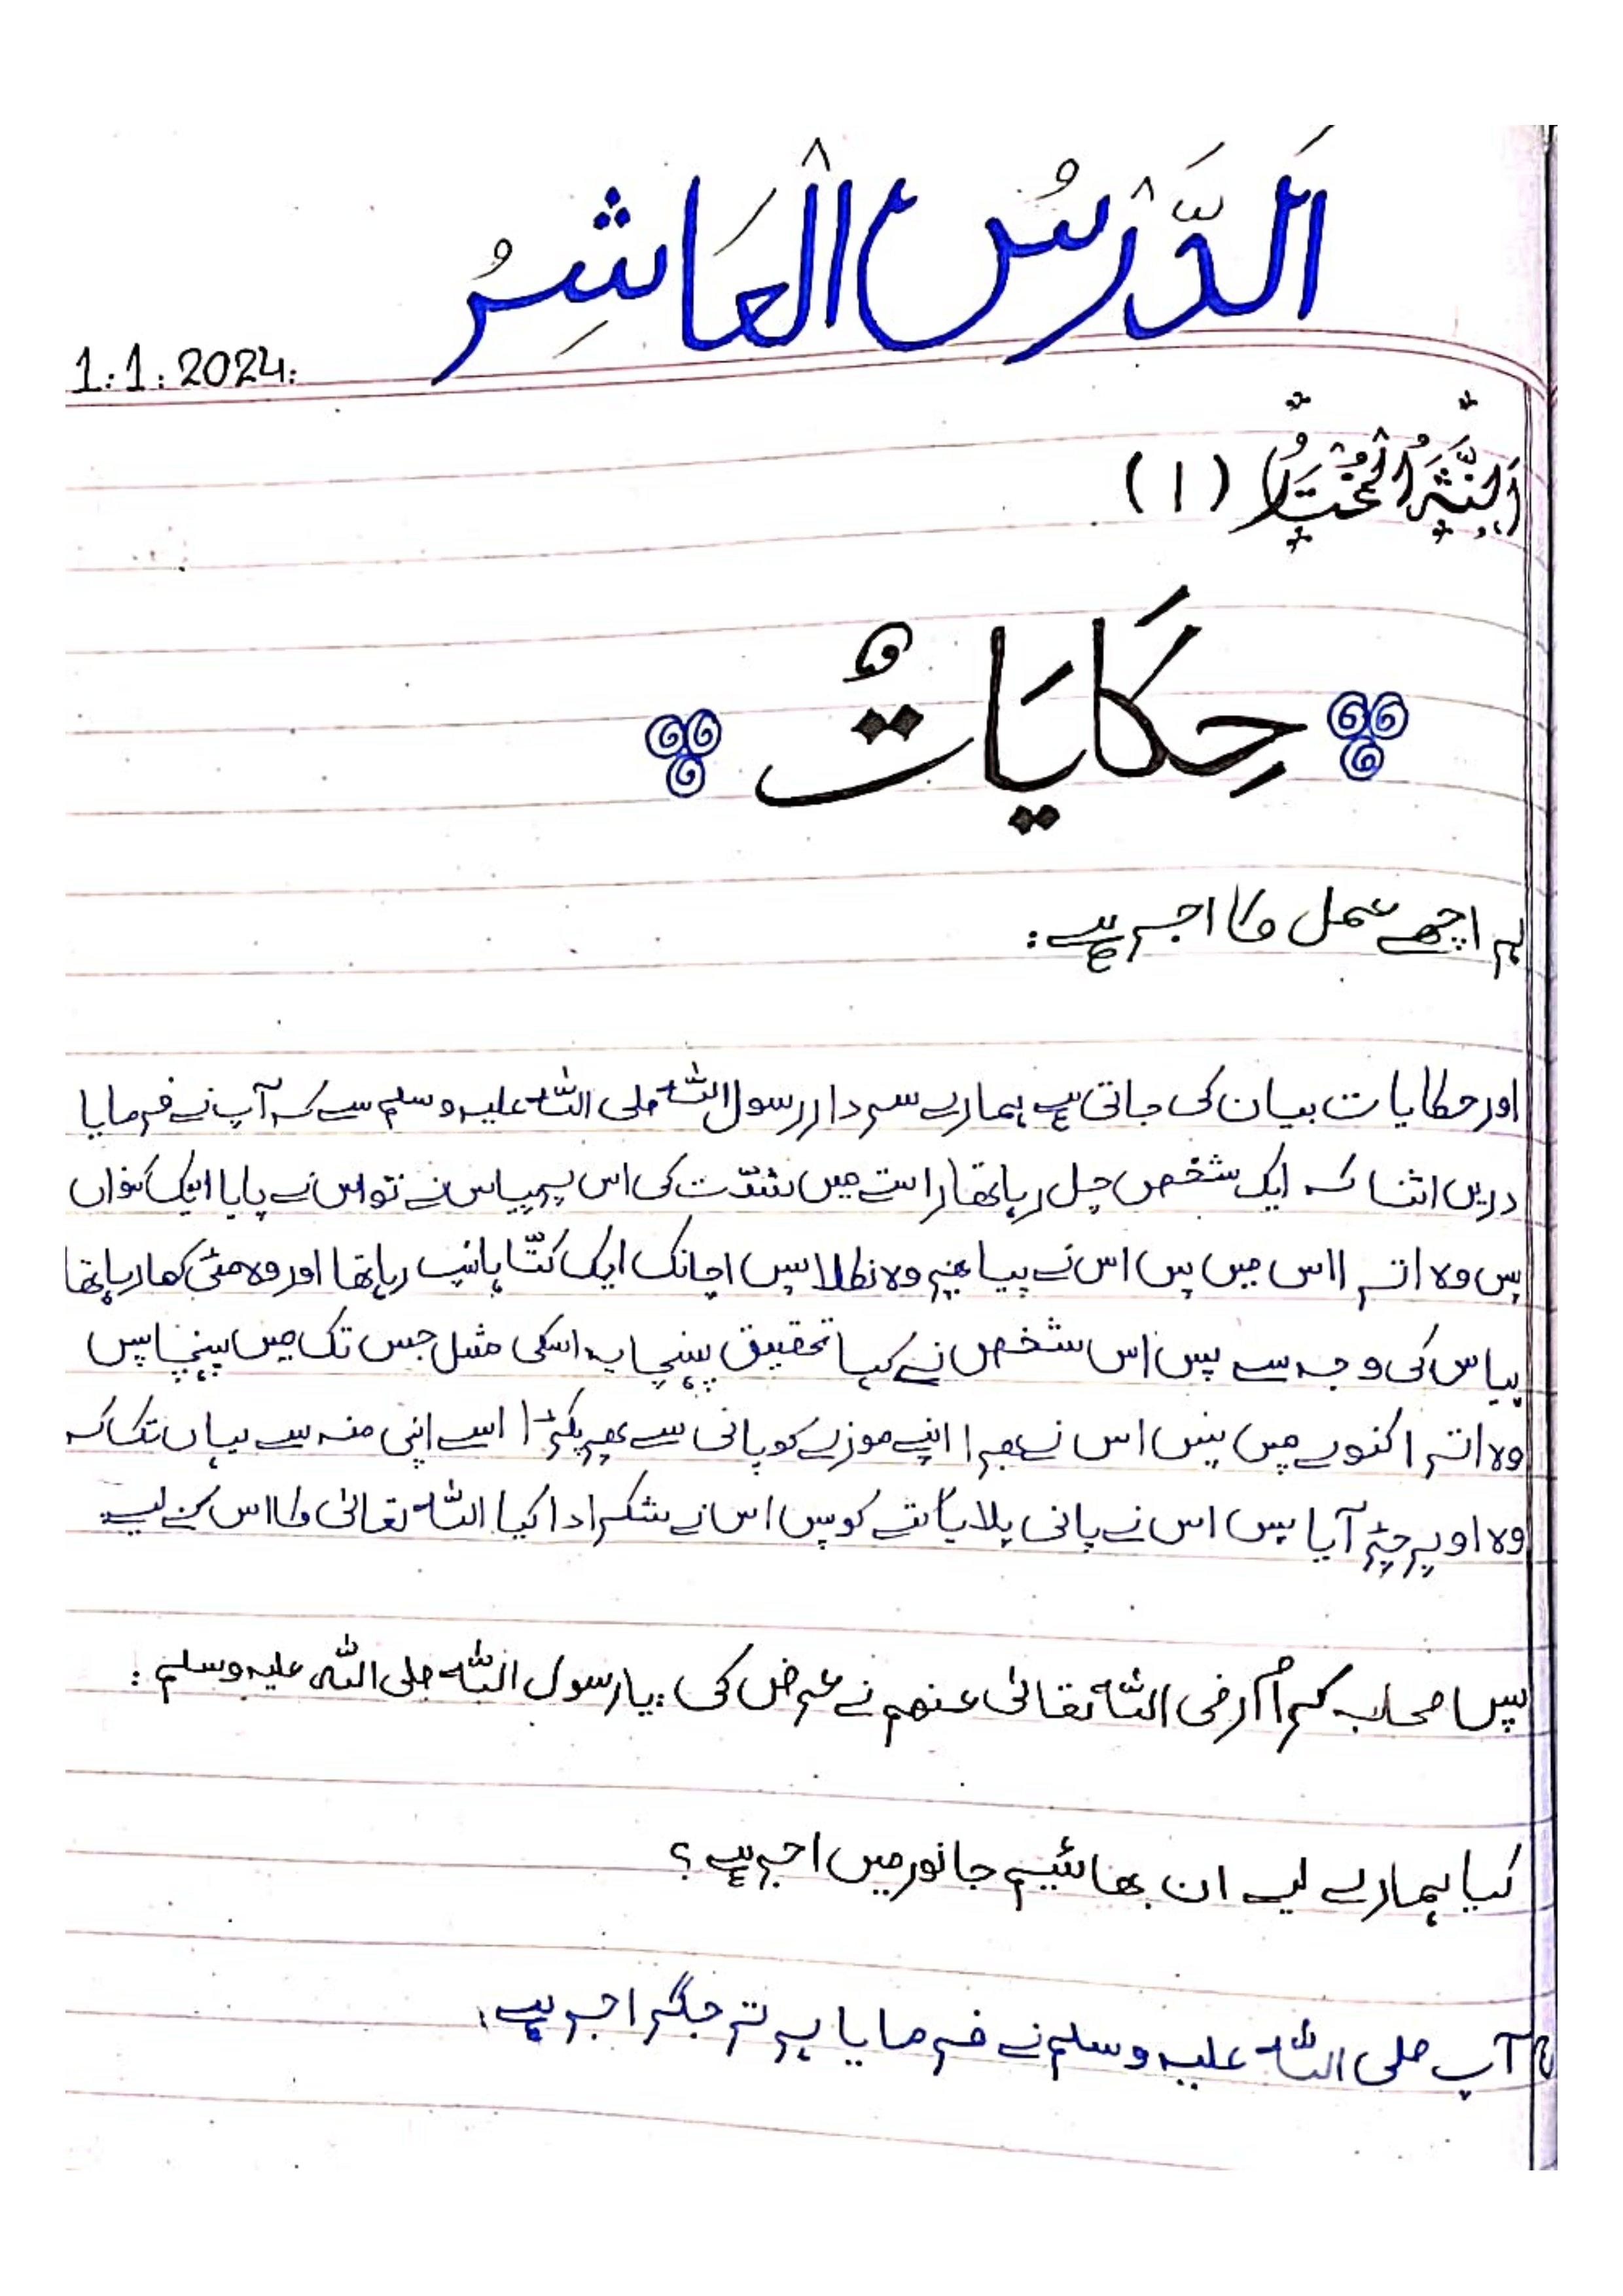 اَلدَّرْسُ الْعَاشِرُ
1.1.2024.
اَلنَّثْرُ الْمُخْتَارُ (١)
حِكَايَاتٌ
ہر اچھے عمل کا اجر ہے:
اور حکایات بیان کی جاتی ہے ہمارے سردار رسول اللہ صلی اللہ علیہ وسلم سے کہ آپ نے فرمایا
دریں اثنا کہ ایک شخص چل رہا تھا راستے میں شدّت کی اس پر پیاس نے تو اس نے پایا ایک کنواں
پس وہ اترا اس میں پس اس نے پیا پھر وہ نکلا پس اچانک ایک کتّا ہانپ رہا تھا اور وہ مٹی کھا رہا تھا
پیاس کی وجہ سے پس اس شخص نے کہا تحقیق پہنچا یہ اسکی مثل جس تک میں پہنچا پس
وہ اترا کنویں میں پس اس نے بھرا اپنے موزے کو پانی سے پھر پکڑا اسے اپنی منہ سے یہاں تک کہ
وہ اوپر چڑ آیا پس اس نے پانی پلایا کتے کو پس اس نے شکر ادا کیا اللہ تعالیٰ کا اس کے لیے
پس صحابہ کرام رضی اللہ تعالیٰ عنھم نے عرض کی: یا رسول اللہ صلی اللہ علیہ وسلم:
کیا ہمارے لیے ان بھائیم جانور میں اجر ہے؟
آپ صلی اللہ علیہ وسلم نے فرمایا ہر تر جگر اجر ہے۔